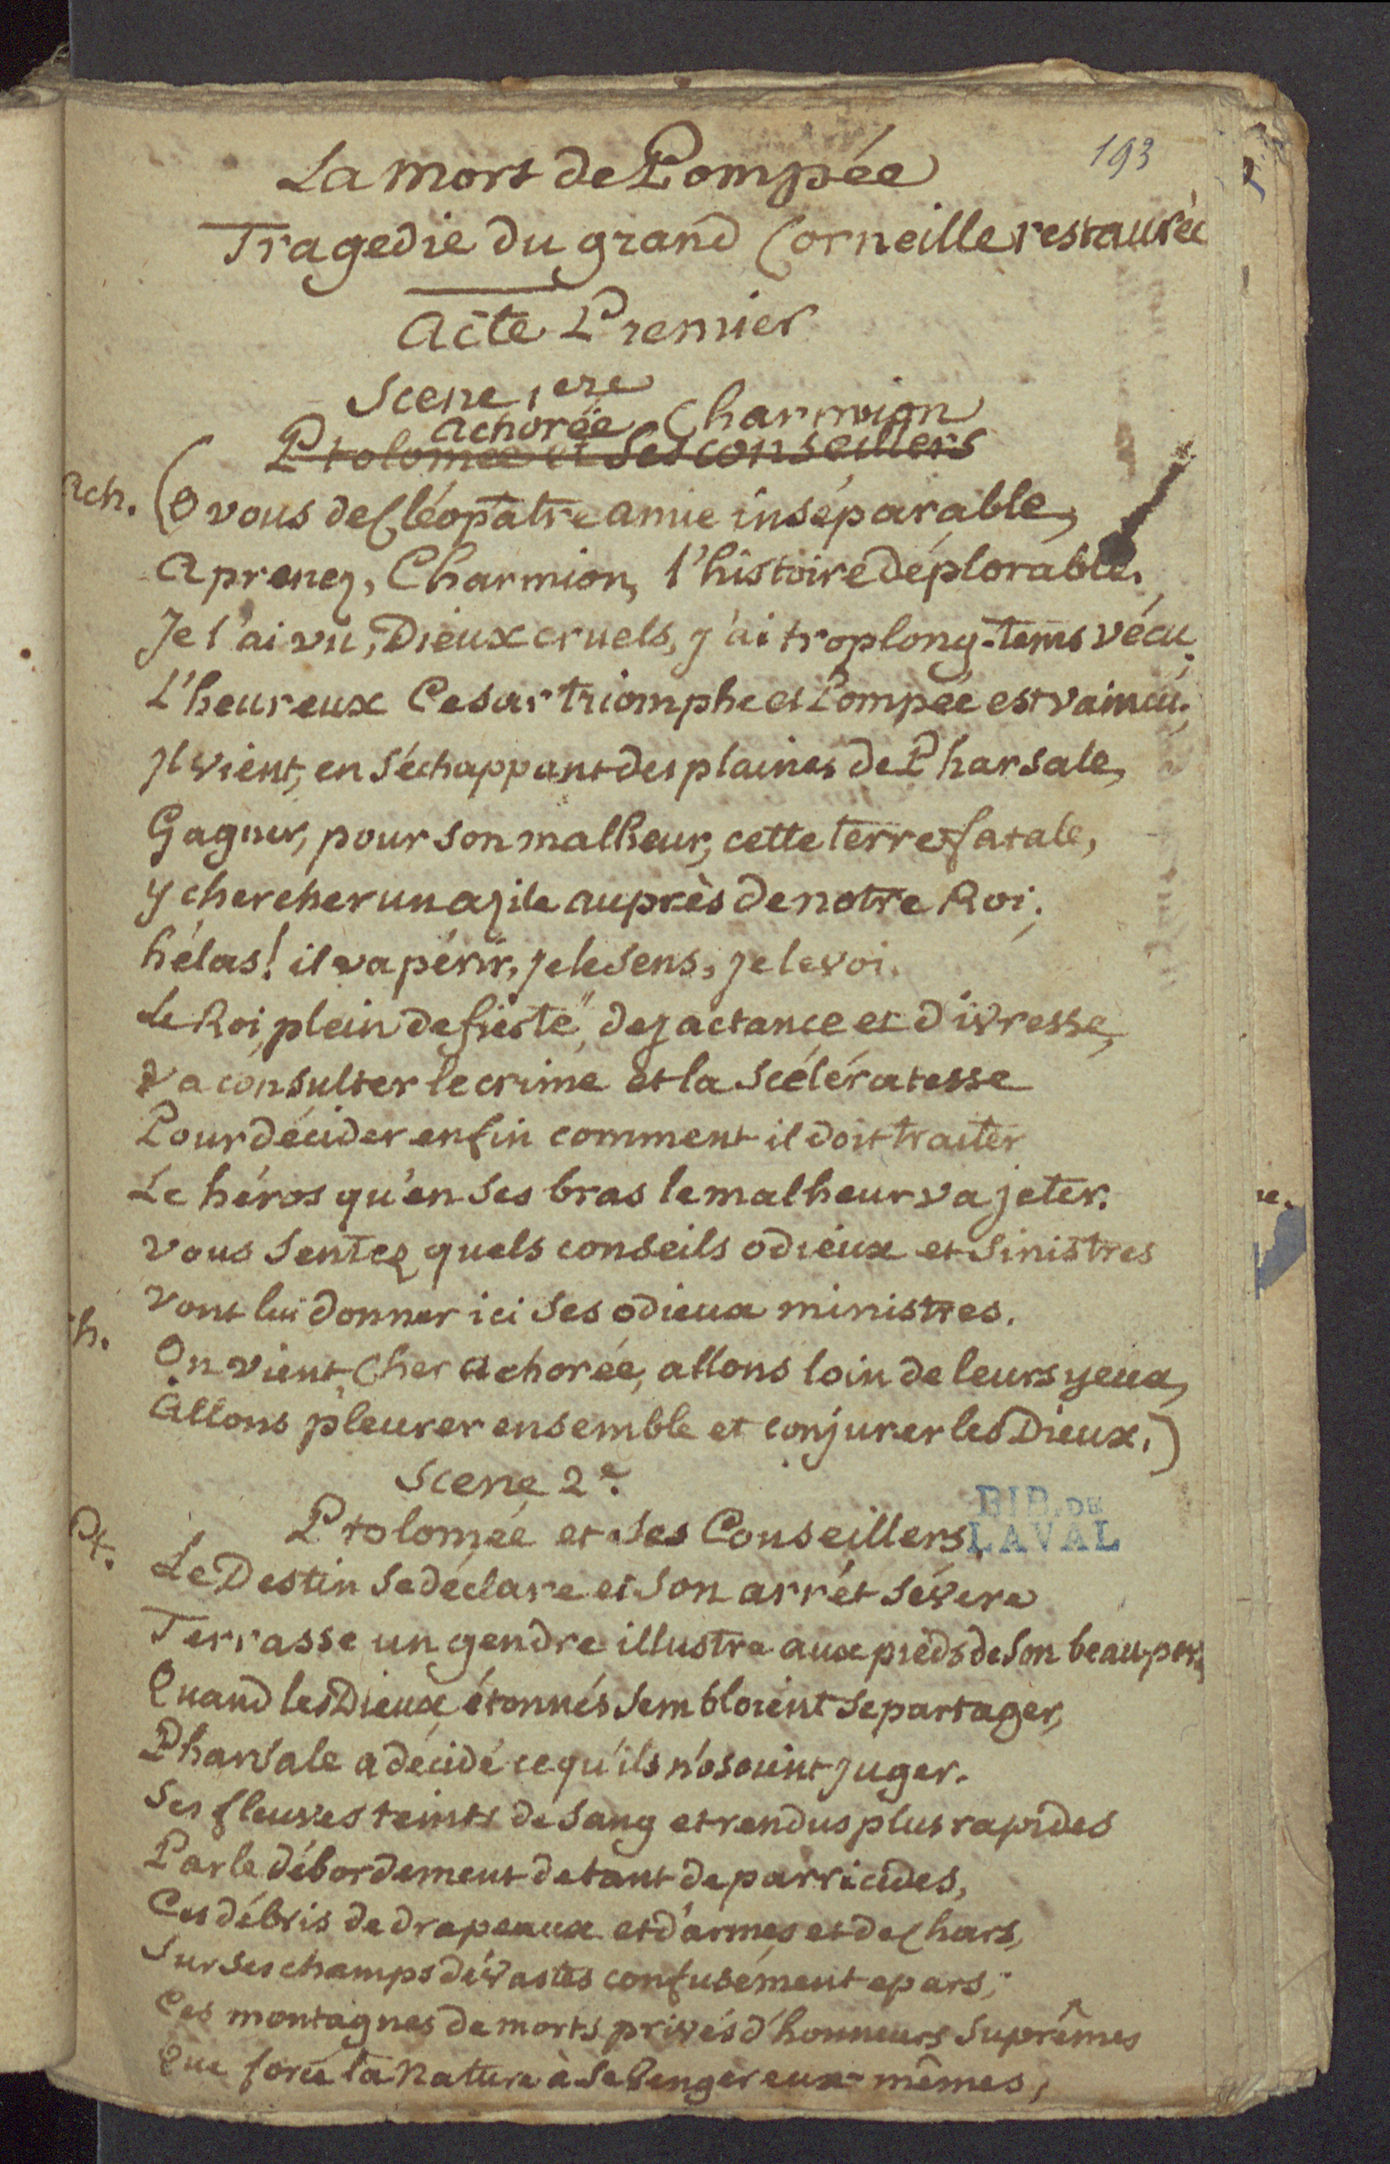 193
La mort de Pompée
Tragedie du grand Corneille restaurée
Acte Premier
Scene 1ere
Achorée Charmion
Ptolomée et ses conseillers
Ach. (O vous de Cléopatre amie inséparable,
Aprenez, Charmion, l'histoire déplorable.
Je l'ai vu, Dieux cruels, j'ai trop long-tems vécu.
L'heureux Cesar triomphe et Pompée est vaincu.
Il vient, en s'échappant des plaines de Pharsale,
Gagner, pour son malheur, cette terre fatale,
y chercher un azile auprès de notre Roi.
hélas! il va périr, je le sens, je le voi.
Le Roi, plein de fierté, de jactance et d'ivresse,
Va consulter le crime et la scélératesse
Pour décider enfin comment il doit traiter
Le héros qu'en ses bras le malheur va jeter.
Vous sentez quels conseils odieux et sinistres
Vont lui donner ici ses odieux ministres.
Ch. On vient, Cher Achorée, allons loin de leurs yeux,
Allons pleurer ensemble et conjurer les Dieux.)
Scene 2e.
Ptolomée et ses Conseillers.
BIB. DE
LAVAL
Pt. Le Destin se déclare et son arrêt sévere
Terrasse un gendre illustre aux pieds de son beau-pere,
Quand les Dieux étonnés sembloient se partager,
Pharsale a décidé ce qu'ils n'osoient juger.
Ses fleuves teints de sang et rendus plus rapides
Par le débordement de tant de parricides,
Ces débris de drapeaux et d'armes et de chars,
Sur ses champs dévastés confusément epars,
Ces montagnes de morts privés d'honneurs suprêmes
Que force la Nature à se venger eux-mêmes,